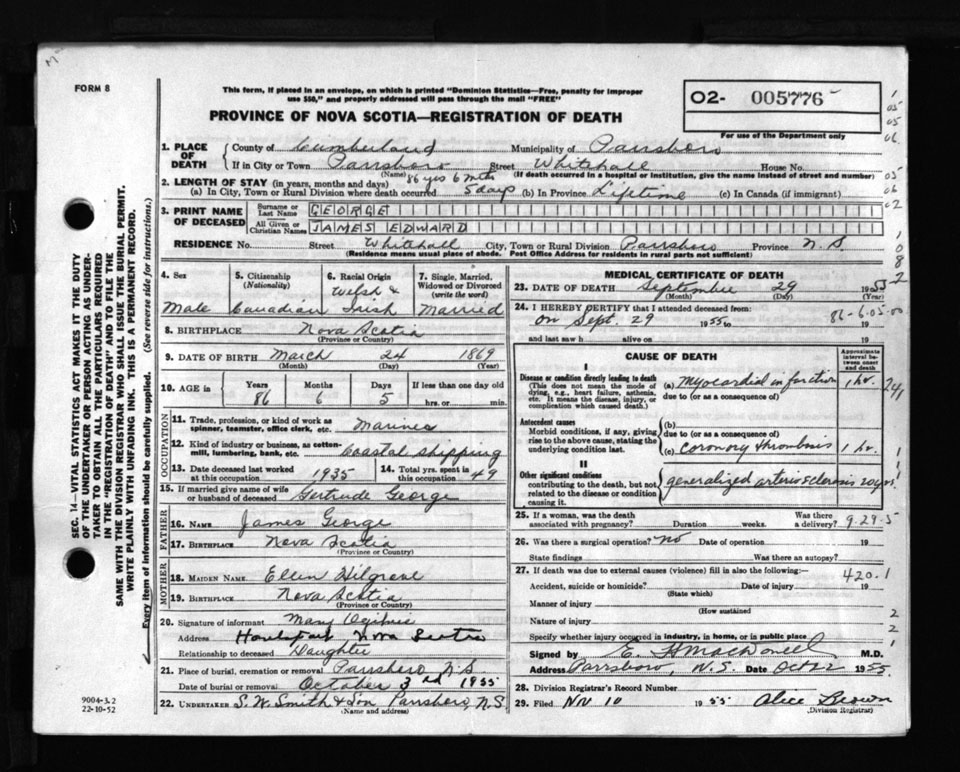 FORM 8
This form, if placed in an envelope, on which is printed "Dominion Statistics—Free, penalty for improper
use $50," and properly addressed will pass through the mail "FREE"
PROVINCE OF NOVA SCOTIA—REGISTRATION OF DEATH
O2- 005776
For use of the Department only
1. PLACE OF DEATH
County of Cumberland Municipality of Parrsboro
If in City or Town Parrsboro Street Whitehall House No.
(Name) (If death occurred in a hospital or institution, give the name instead of street and number)
86 yrs 6 mths
2. LENGTH OF STAY (in years, months and days)
(a) In City, Town or Rural Division where death occurred 5 days (b) In Province Lifetime (c) In Canada (if immigrant)
3. PRINT NAME OF DECEASED
Surname or Last Name GEORGE
All Given or Christian Names JAMES EDWARD
RESIDENCE No. Street Whitehall City, Town or Rural Division Parrsboro Province N.S.
(Residence means usual place of abode. Post Office Address for residents in rural parts not sufficient)
4. Sex Male
5. Citizenship (Nationality) Canadian
6. Racial Origin Welsh & Irish
7. Single, Married, Widowed or Divorced (write the word) Married
8. BIRTHPLACE Nova Scotia
(Province or Country)
9. DATE OF BIRTH March 24 1869
(Month) (Day) (Year)
10. AGE in Years Months Days If less than one day old
86 6 5 hrs. or min.
OCCUPATION
11. Trade, profession, or kind of work as spinner, teamster, office clerk, etc. Mariner
12. Kind of industry or business, as cotton-mill, lumbering, bank, etc. Coastal shipping
13. Date deceased last worked at this occupation 1935
14. Total yrs. spent in this occupation 49
15. If married give name of wife or husband of deceased Gertrude George
FATHER
16. NAME James George
17. BIRTHPLACE Nova Scotia
(Province or Country)
MOTHER
18. MAIDEN NAME Ellen
19. BIRTHPLACE Nova Scotia
(Province or Country)
20. Signature of informant Mary Ogilvie
Address Nova Scotia
Relationship to deceased Daughter
21. Place of burial, cremation or removal Parrsboro N.S.
Date of burial or removal October 3rd 1955
22. UNDERTAKER S. W. Smith & Son Parrsboro, N.S.
(Name and address)
MEDICAL CERTIFICATE OF DEATH
23. DATE OF DEATH September 29 1955
(Month) (Day) (Year)
24. I HEREBY CERTIFY that I attended deceased from:
on Sept. 29 1955 to 19
86-6-05-00
and last saw h alive on 19
CAUSE OF DEATH
Approximate interval between onset and death
I
Disease or condition directly leading to death
(This does not mean the mode of dying, e.g., heart failure, asthenia, etc. It means the disease, injury, or complication which caused death.)
(a) myocardial infarction 1 hr.
due to (or as a consequence of)
Antecedent causes
Morbid conditions, if any, giving rise to the above cause, stating the underlying condition last.
(b)
due to (or as a consequence of)
(c) coronary thrombosis 1 hr.
II
Other significant conditions
contributing to the death, but not related to the disease or condition causing it.
generalized arteriosclerosis 20 yrs.
25. If a woman, was the death associated with pregnancy? Duration weeks. Was there a delivery?
9-29-5
26. Was there a surgical operation? no Date of operation 19
State findings Was there an autopsy?
27. If death was due to external causes (violence) fill in also the following:—
420.1
Accident, suicide or homicide? Date of injury 19
(State which)
Manner of injury
(How sustained
Nature of injury
Specify whether injury occurred in industry, in home, or in public place
Signed by M.D.
Address Parrsboro, N.S. Date Oct 22 1955
28. Division Registrar's Record Number
29. Filed Nov 10 1955 Alice Brown
(Division Registrar)
SEC. 14—VITAL STATISTICS ACT MAKES IT THE DUTY
OF THE UNDERTAKER OR PERSON ACTING AS UNDER-
TAKER TO OBTAIN ALL THE PARTICULARS REQUIRED
IN THE "REGISTRATION OF DEATH" AND TO FILE THE
SAME WITH THE DIVISION REGISTRAR WHO SHALL ISSUE THE BURIAL PERMIT.
WRITE PLAINLY WITH UNFADING INK. THIS IS A PERMANENT RECORD.
Every item of information should be carefully supplied. (See reverse side for instructions.)
9004-3.2
22-10-52